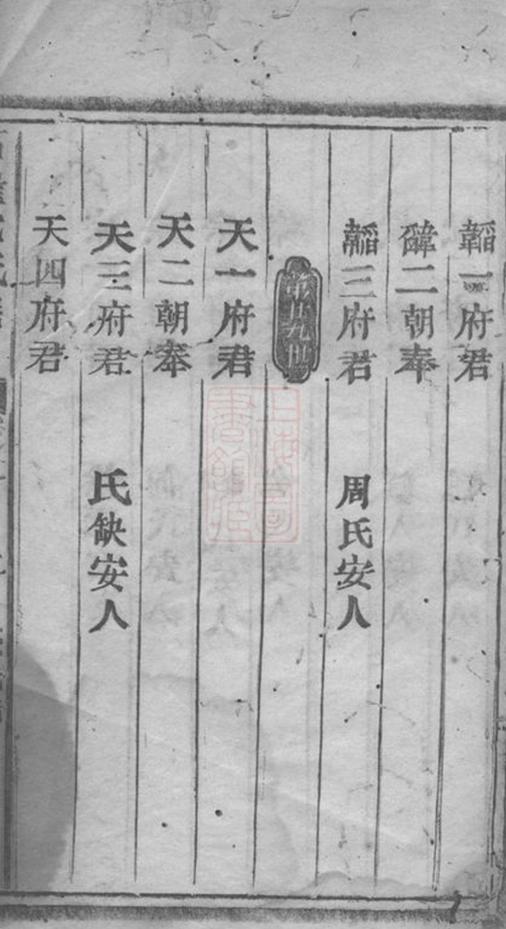 韜一府君
韡二朝奉
韜三府君
周氏安人
第五九世
天一府君
天二朝奉
天三府君
氏缺安人
天四府君
上海圖書館藏